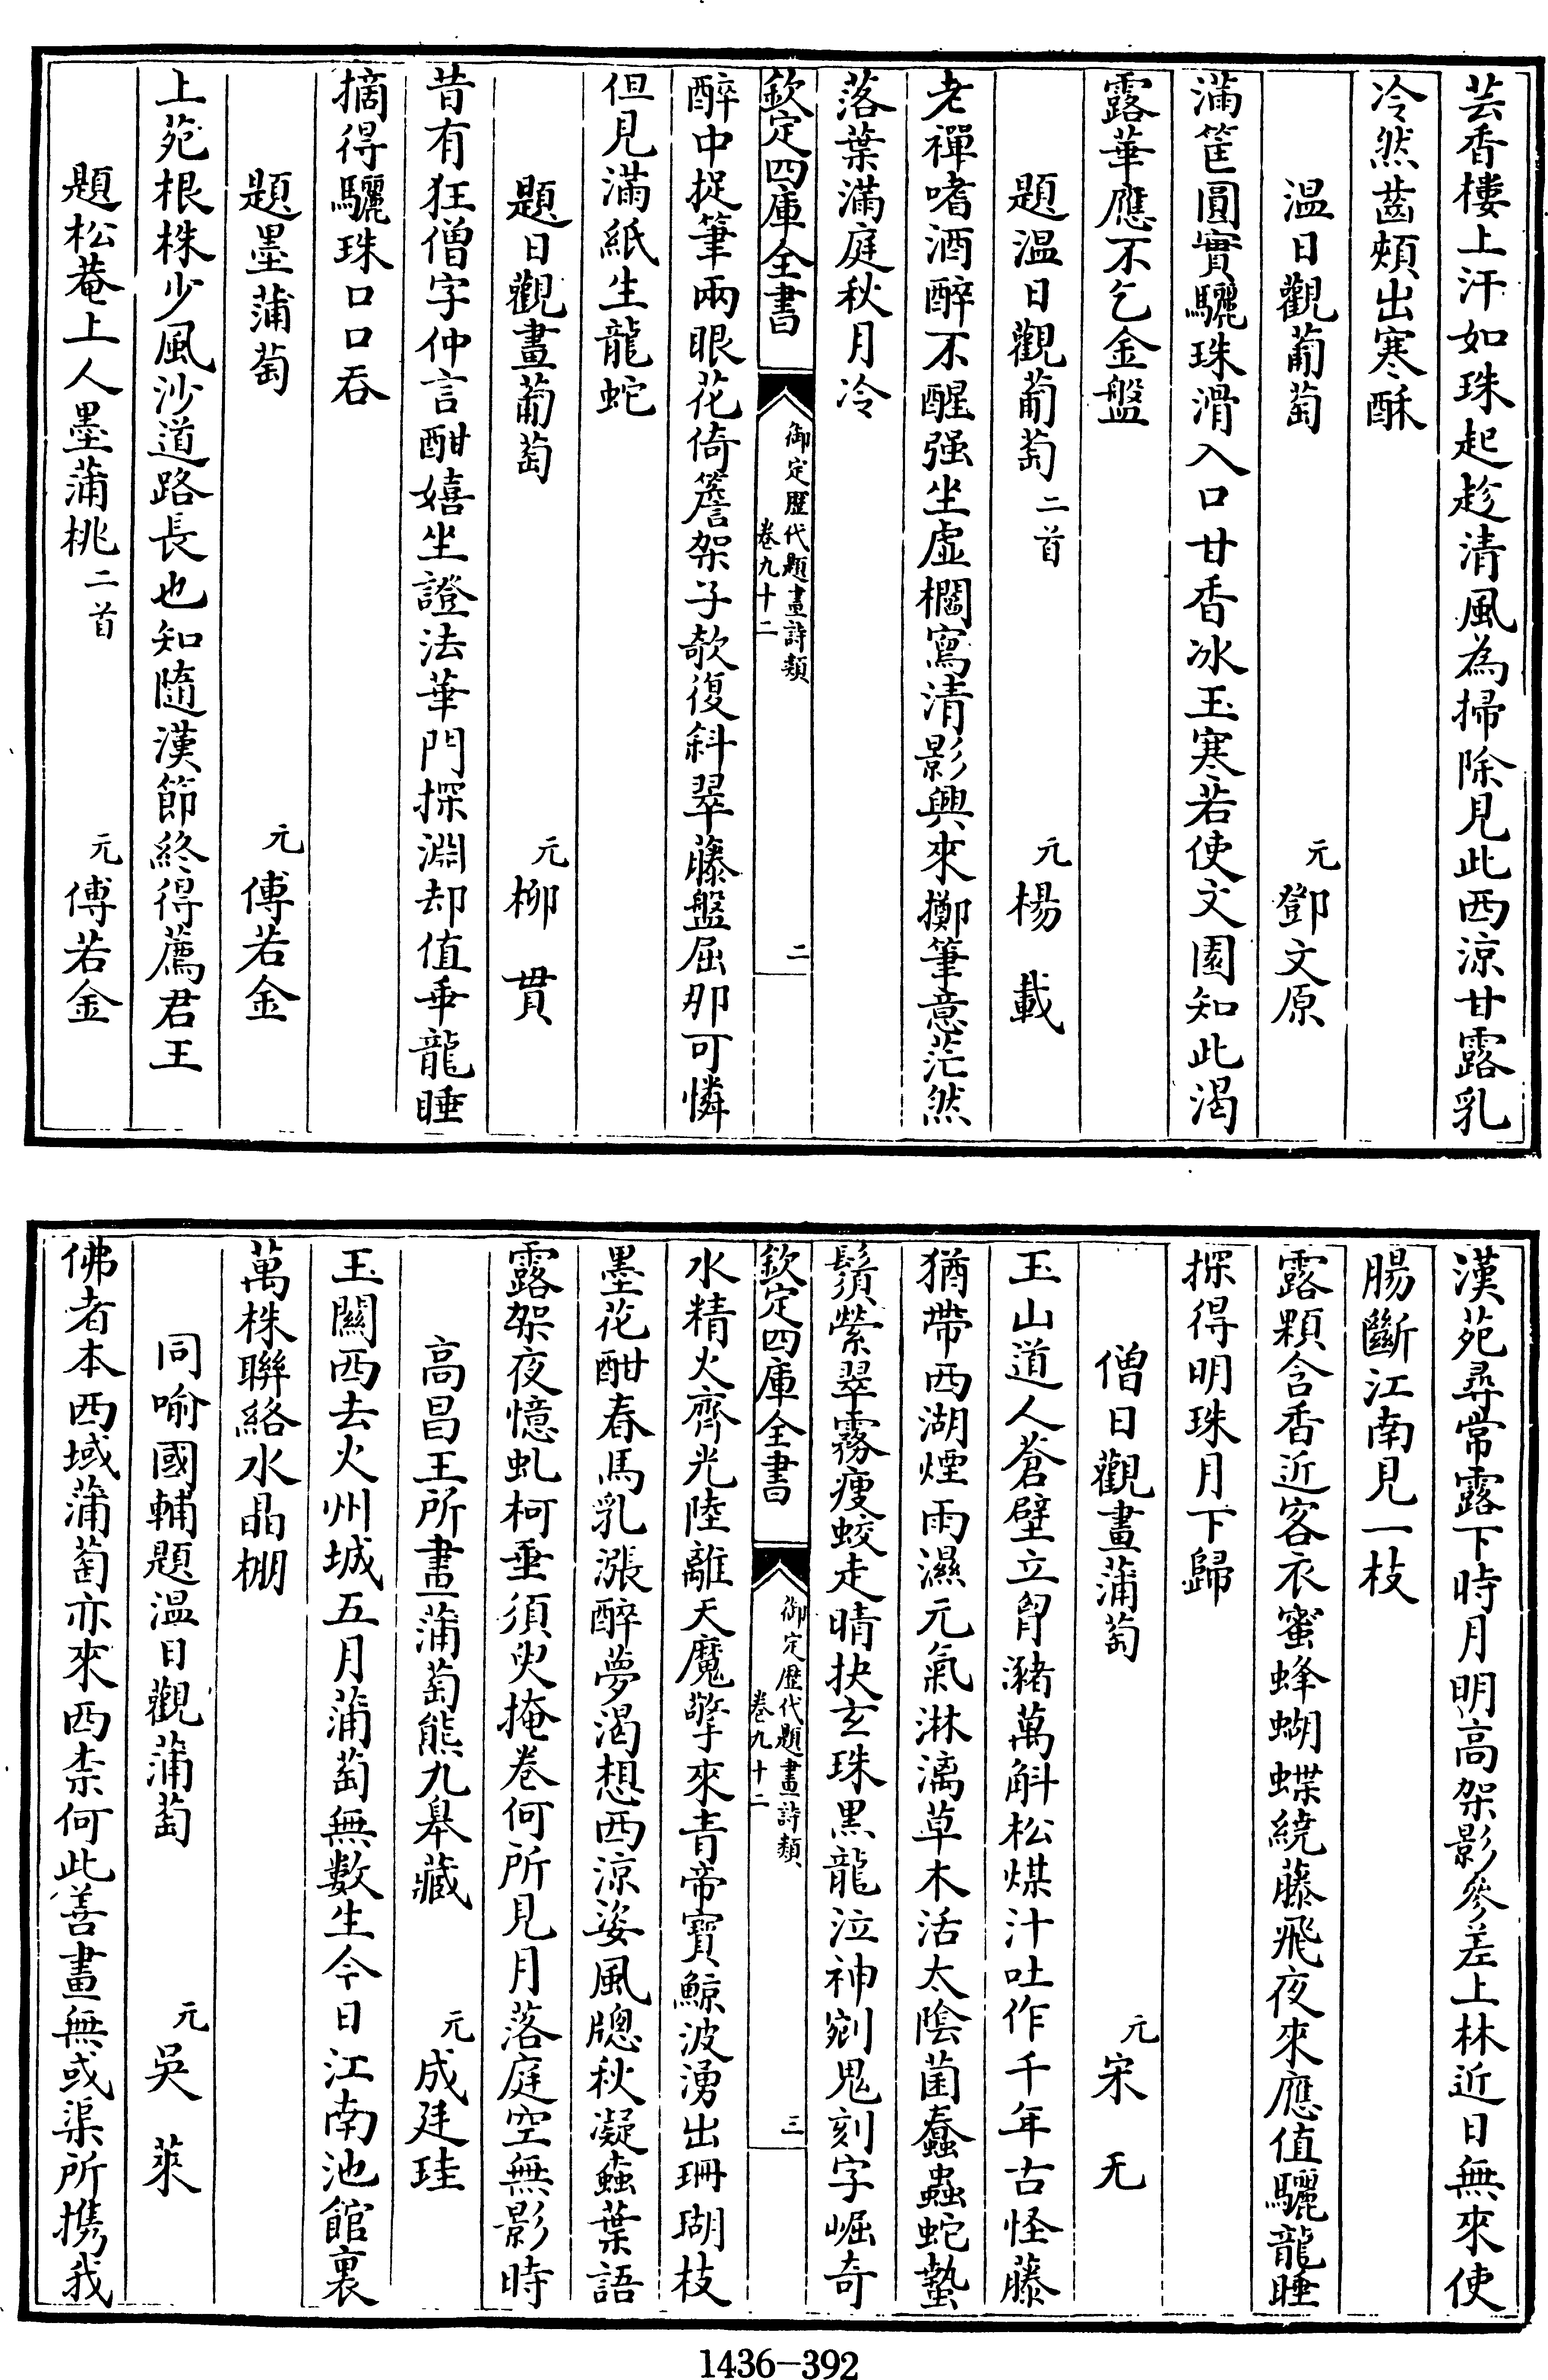 芸香樓上汗如珠起趁清風為掃除見此西涼甘露乳
冷然齒頰出寒酥
温日觀葡萄 元 鄧文原
滿筐圓實驪珠滑入口甘香冰玉寒若使文園知此渴
露華應不乞金盤
題温日觀葡萄二首 元 楊載
老禪嗜酒醉不醒强坐虛欄寫清影興來擲筆意茫然
落葉滿庭秋月冷
欽定四庫全書 御定歷代題畫詩類 卷九十二 二
醉中捉筆兩眼花倚簷架子欹復斜翠藤盤屈那可憐
但見滿紙生龍蛇
題日觀畫葡萄 元 柳貫
昔有狂僧字仲言酣嬉坐證法華門探淵却值垂龍睡
摘得驪珠口口吞
題墨蒲萄 元 傅若金
上苑根株少風沙道路長也知隨漢節終得薦君王
題松菴上人墨蒲桃二首 元 傅若金
漢苑尋常露下時月明高架影參差上林近日無來使
腸斷江南見一枝
露顆含香近客衣蜜蜂蝴蝶繞藤飛夜來應值驪龍睡
探得明珠月下歸
僧日觀畫蒲萄 元 宋无
玉山道人蒼壁立胷瀦萬斛松煤汁吐作千年古怪藤
猶帶西湖煙雨濕元氣淋漓草木活太陰菌蠢蟲蛇蟄
鬚縈翠霧瘦蛟走睛抉玄珠黑龍泣神剜鬼刻字崛奇
欽定四庫全書 御定歷代題畫詩類 卷九十二 三
水精火齊光陸離天魔擎來青帝寶鯨波湧出珊瑚枝
墨花酣春馬乳漲醉夢渴想西涼姿風牕秋凝蟲葉語
露架夜憶虬柯垂須臾掩卷何所見月落庭空無影時
高昌王所畫蒲萄熊九臯藏 元 成廷珪
玉關西去火州城五月蒲萄無數生今日江南池館裏
萬株聯絡水晶棚
同喻國輔題温日觀蒲萄 元 吳萊
佛者本西域蒲萄亦來西柰何此善畫無或渠所携我
1436-392